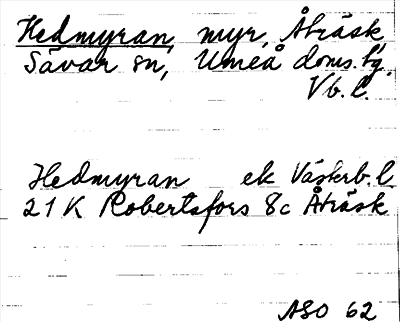 Hedmyran, myr, Åträsk,
Sävar sn, Umeå doms. tg,
Vb. l.
Hedmyran ek Västerb. l
21 K Robertsfors 8c Åträsk
ASO 62